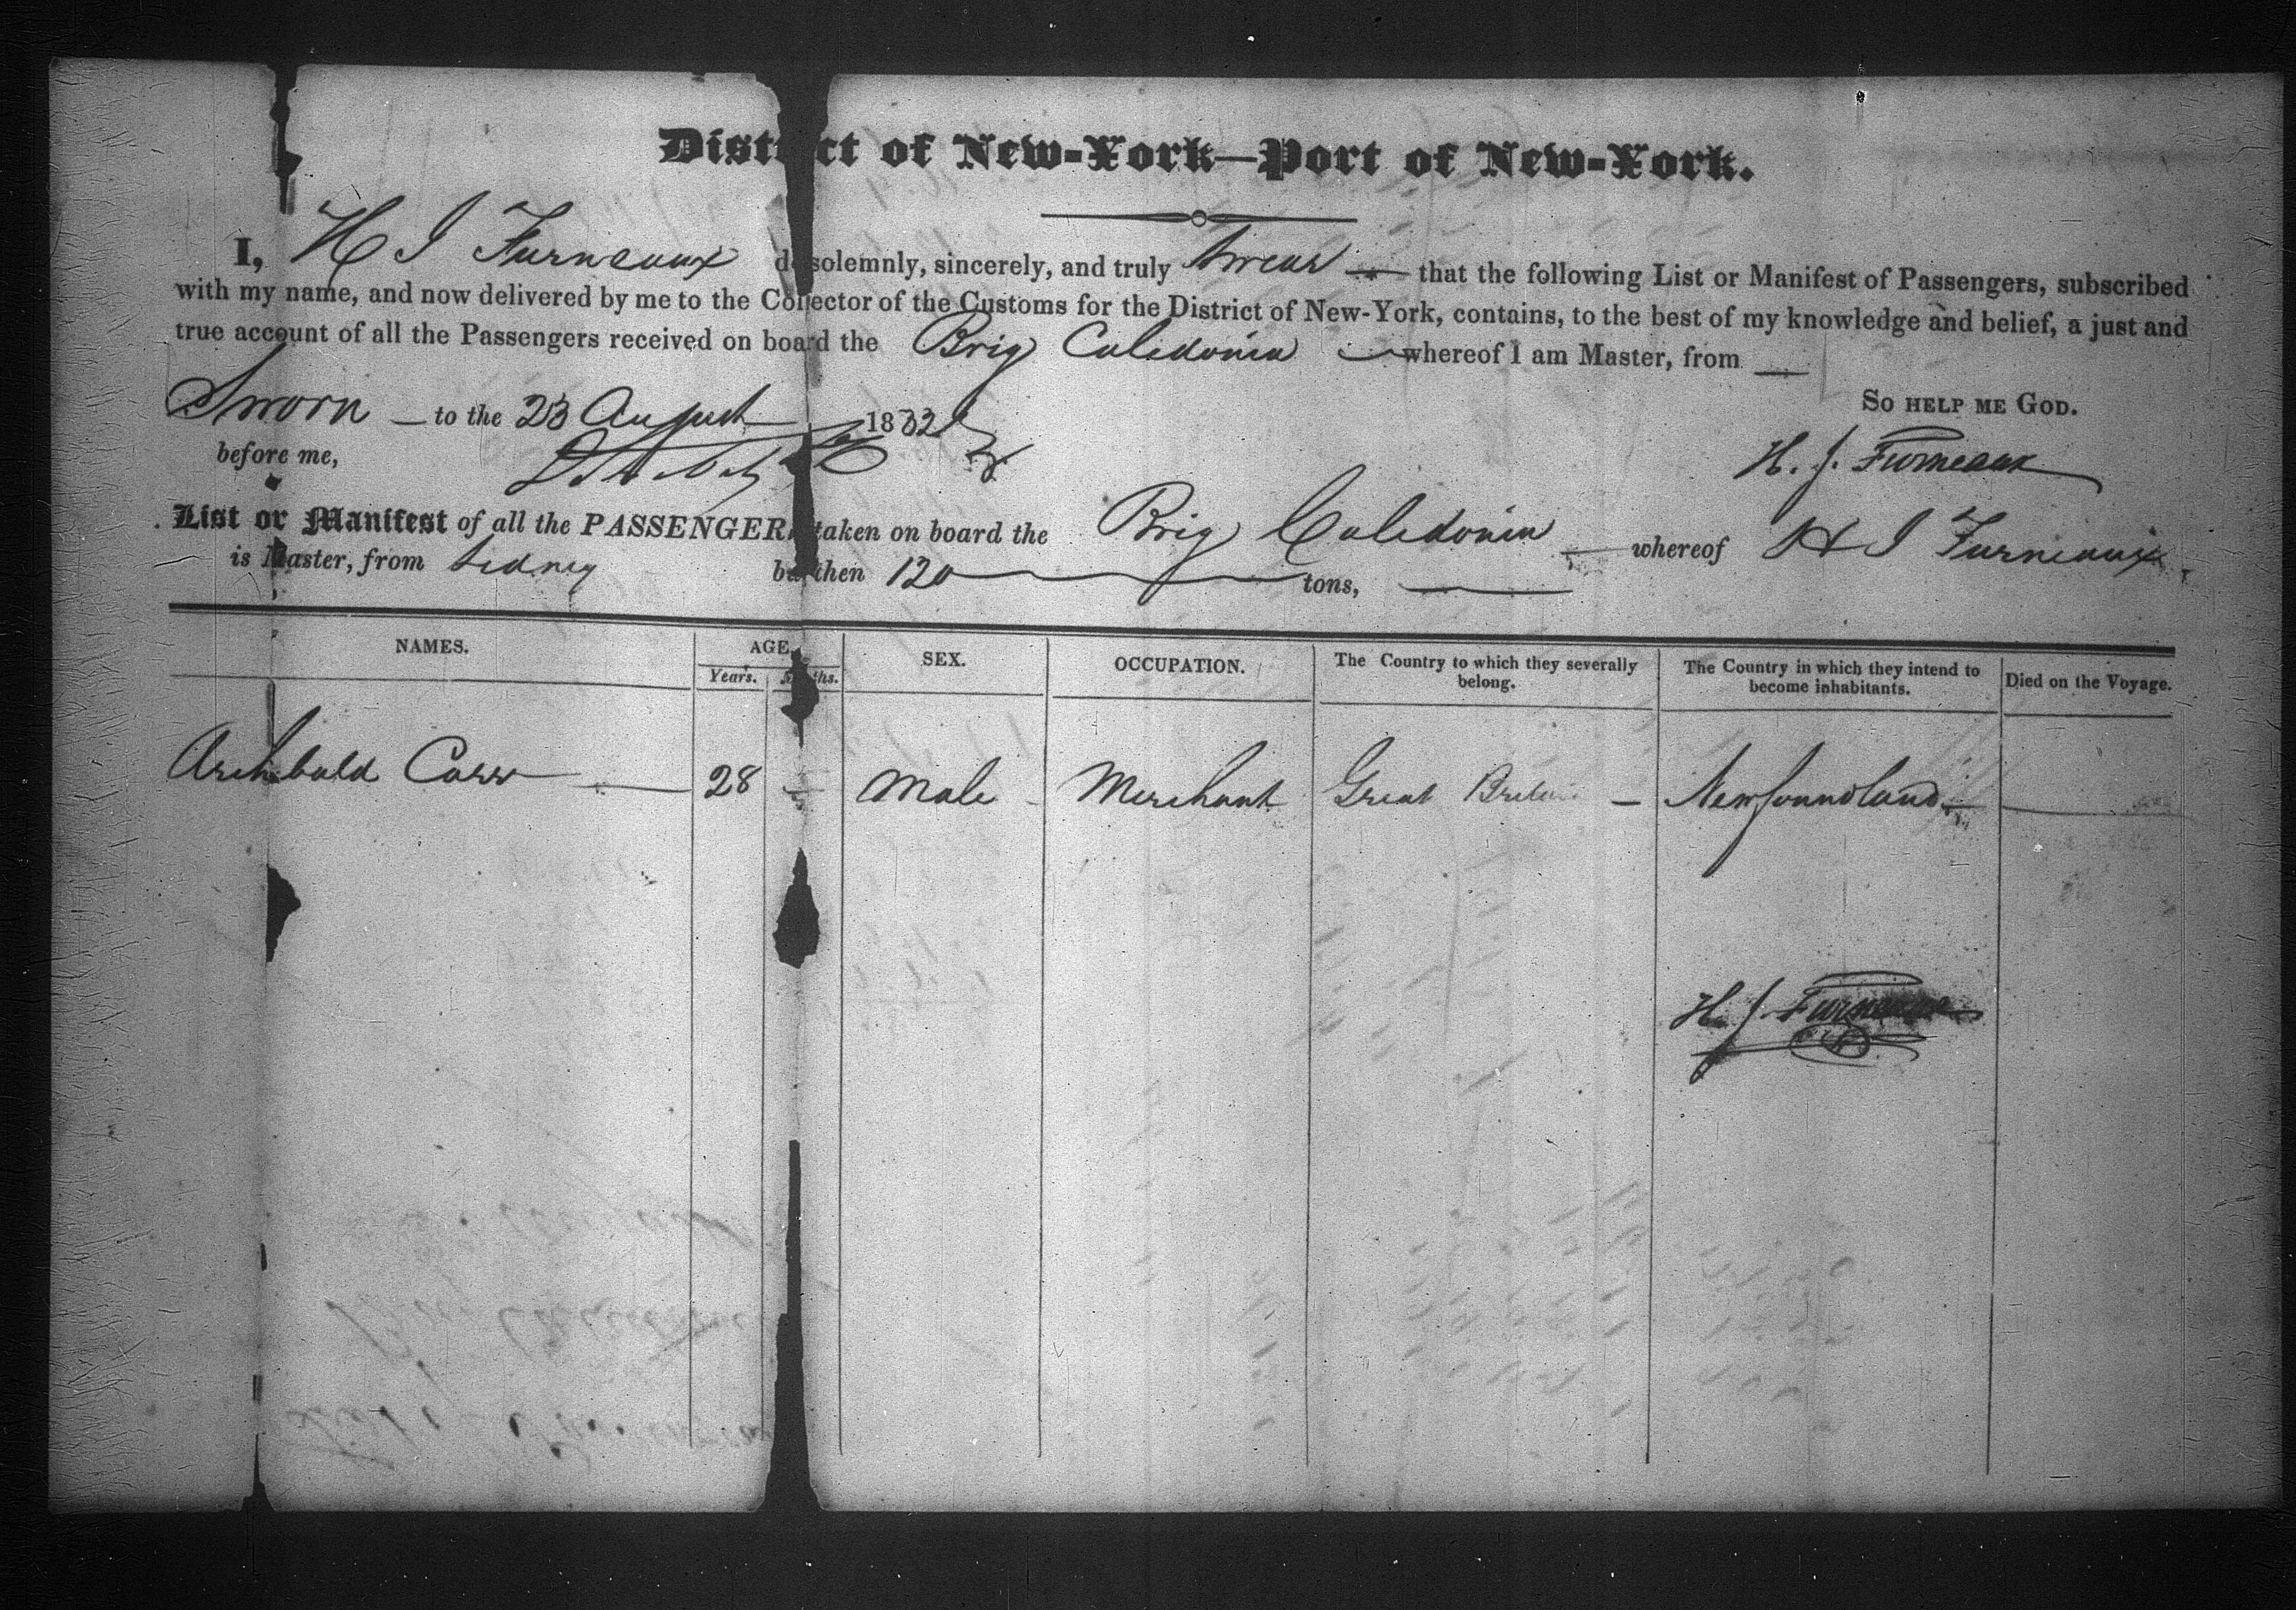 District of New-York—Port of New-York.
I, H J Furneaux do solemnly, sincerely, and truly Swear — that the following List or Manifest of Passengers, subscribed
with my name, and now delivered by me to the Collector of the Customs for the District of New-York, contains, to the best of my knowledge and belief, a just and
true account of all the Passengers received on board the Brig Caledonia — whereof I am Master, from —
So help me God.
Sworn — to the 23 August 1832
before me,
H. J. Furneaux
List or Manifest of all the PASSENGERS taken on board the Brig Caledonia — whereof H J Furneaux
is Master, from Sidney burthen 120 — tons, —
NAMES. AGE. SEX. OCCUPATION. The Country to which they severally belong. The Country in which they intend to become inhabitants. Died on the Voyage.
Years. Months.
Archibald Carr — 28 — Male - Merchant Great Britain — Newfoundland — —
H. J. Furneaux